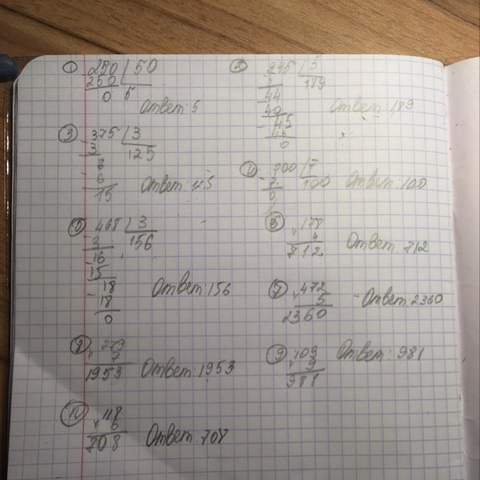 ① 250 | 50
250 5
0
Ответ: 5
② 945 | 5
5 189
44
40
45
45
0
Ответ: 189
③ 375 | 3
3 125
6
15
④ 700 | 7
7 100
0
Ответ: 100
⑤ 468 | 3
3 156
16
15
18
18
0
Ответ: 156
⑥ 178
4
712
Ответ: 712
⑦ 472
5
2360
Ответ: 2360
⑧ 279
7
1953 Ответ: 1953
⑨ 109
9
981
Ответ: 981
⑩ 118
6
708 Ответ 708